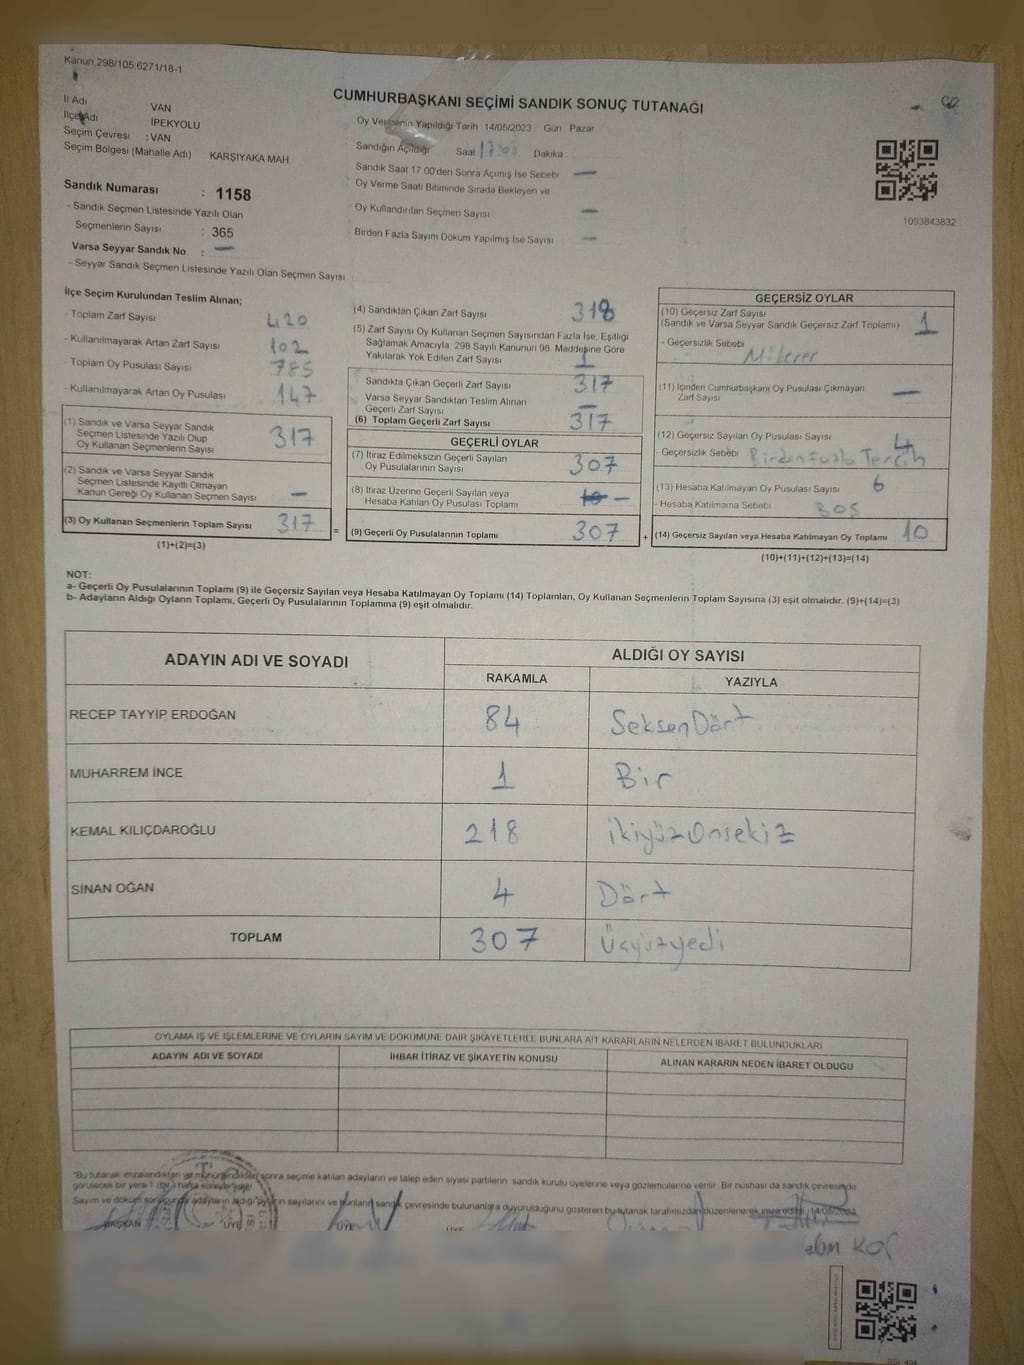 Kanun 298/105.6271/18-1
CUMHURBAŞKANI SEÇİMİ SANDIK SONUÇ TUTANAĞI
İl Adı VAN
İlçe Adı İPEKYOLU
Seçim Çevresi : VAN
Seçim Bölgesi (Mahalle Adı) KARŞIYAKA MAH
Sandık Numarası : 1158
- Sandık Seçmen Listesinde Yazılı Olan
Seçmenlerin Sayısı : 365
Varsa Seyyar Sandık No : —
- Seyyar Sandık Seçmen Listesinde Yazılı Olan Seçmen Sayısı
Oy Vermenin Yapıldığı Tarih 14/05/2023 Gün Pazar
Sandığın Açıldığı Saat 17:03 Dakika
Sandık Saat 17.00'den Sonra Açılmış İse Sebebi —
Oy Verme Saati Bitiminde Sırada Bekleyen ve
Oy Kullandırılan Seçmen Sayısı —
Birden Fazla Sayım Döküm Yapılmış İse Sayısı —
1093843832
İlçe Seçim Kurulundan Teslim Alınan;
- Toplam Zarf Sayısı 420
- Kullanılmayarak Artan Zarf Sayısı 102
- Toplam Oy Pusulası Sayısı 785
- Kullanılmayarak Artan Oy Pusulası 147
(1) Sandık ve Varsa Seyyar Sandık
Seçmen Listesinde Yazılı Olup
Oy Kullanan Seçmenlerin Sayısı 317
(2) Sandık ve Varsa Seyyar Sandık
Seçmen Listesinde Kayıtlı Olmayan
Kanun Gereği Oy Kullanan Seçmen Sayısı —
(3) Oy Kullanan Seçmenlerin Toplam Sayısı 317
(1)+(2)=(3)
(4) Sandıktan Çıkan Zarf Sayısı 318
(5) Zarf Sayısı Oy Kullanan Seçmen Sayısından Fazla İse, Eşitliği
Sağlamak Amacıyla; 298 Sayılı Kanunun 98. Maddesine Göre
Yakılarak Yok Edilen Zarf Sayısı 1
Sandıkta Çıkan Geçerli Zarf Sayısı 317
Varsa Seyyar Sandıktan Teslim Alınan
Geçerli Zarf Sayısı —
(6) Toplam Geçerli Zarf Sayısı 317
GEÇERLİ OYLAR
(7) İtiraz Edilmeksizin Geçerli Sayılan
Oy Pusulalarının Sayısı 307
(8) İtiraz Üzerine Geçerli Sayılan veya
Hesaba Katılan Oy Pusulası Toplamı 10 —
= (9) Geçerli Oy Pusulalarının Toplamı 307
GEÇERSİZ OYLAR
(10) Geçersiz Zarf Sayısı
(Sandık ve Varsa Seyyar Sandık Geçersiz Zarf Toplamı) 1
- Geçersizlik Sebebi
(11) İçinden Cumhurbaşkanı Oy Pusulası Çıkmayan
Zarf Sayısı —
(12) Geçersiz Sayılan Oy Pusulası Sayısı 4
- Geçersizlik Sebebi Birden Fazla Tercih
(13) Hesaba Katılmayan Oy Pusulası Sayısı 6
- Hesaba Katılmama Sebebi BOŞ
+ (14) Geçersiz Sayılan veya Hesaba Katılmayan Oy Toplamı 10
(10)+(11)+(12)+(13)=(14)
NOT:
a- Geçerli Oy Pusulalarının Toplamı (9) ile Geçersiz Sayılan veya Hesaba Katılmayan Oy Toplamı (14) Toplamları, Oy Kullanan Seçmenlerin Toplam Sayısına (3) eşit olmalıdır. (9)+(14)=(3)
b- Adayların Aldığı Oyların Toplamı, Geçerli Oy Pusulalarının Toplamına (9) eşit olmalıdır.
ADAYIN ADI VE SOYADI ALDIĞI OY SAYISI
RAKAMLA YAZIYLA
RECEP TAYYİP ERDOĞAN 84 Seksen Dört
MUHARREM İNCE 1 Bir
KEMAL KILIÇDAROĞLU 218 ikiyüzonsekiz
SİNAN OĞAN 4 Dört
TOPLAM 307 Üçyüzyedi
OYLAMA İŞ VE İŞLEMLERİNE VE OYLARIN SAYIM VE DÖKÜMÜNE DAİR ŞİKAYETLERLE BUNLARA AİT KARARLARIN NELERDEN İBARET BULUNDUKLARI
ADAYIN ADI VE SOYADI İHBAR İTİRAZ VE ŞİKAYETİN KONUSU ALINAN KARARIN NEDEN İBARET OLDUĞU
*Bu tutanak imzalandıktan ve mühürlendikten sonra seçime katılan adayların ve talep eden siyasi partilerin sandık kurulu üyelerine veya gözlemcilerine verilir. Bir nüshası da sandık çevresinde
görülecek bir yere 1 (Bir) hafta süreyle asılır.
Sayım ve döküm sonucunda adayların aldığı oyların sayılarını ve bunların sandık çevresinde bulunanlara duyurulduğunu gösteren bu tutanak tarafımızdan düzenlenerek imza edildi. 14/05/2023
BAŞKAN ÜYE ÜYE ÜYE
KOÇ